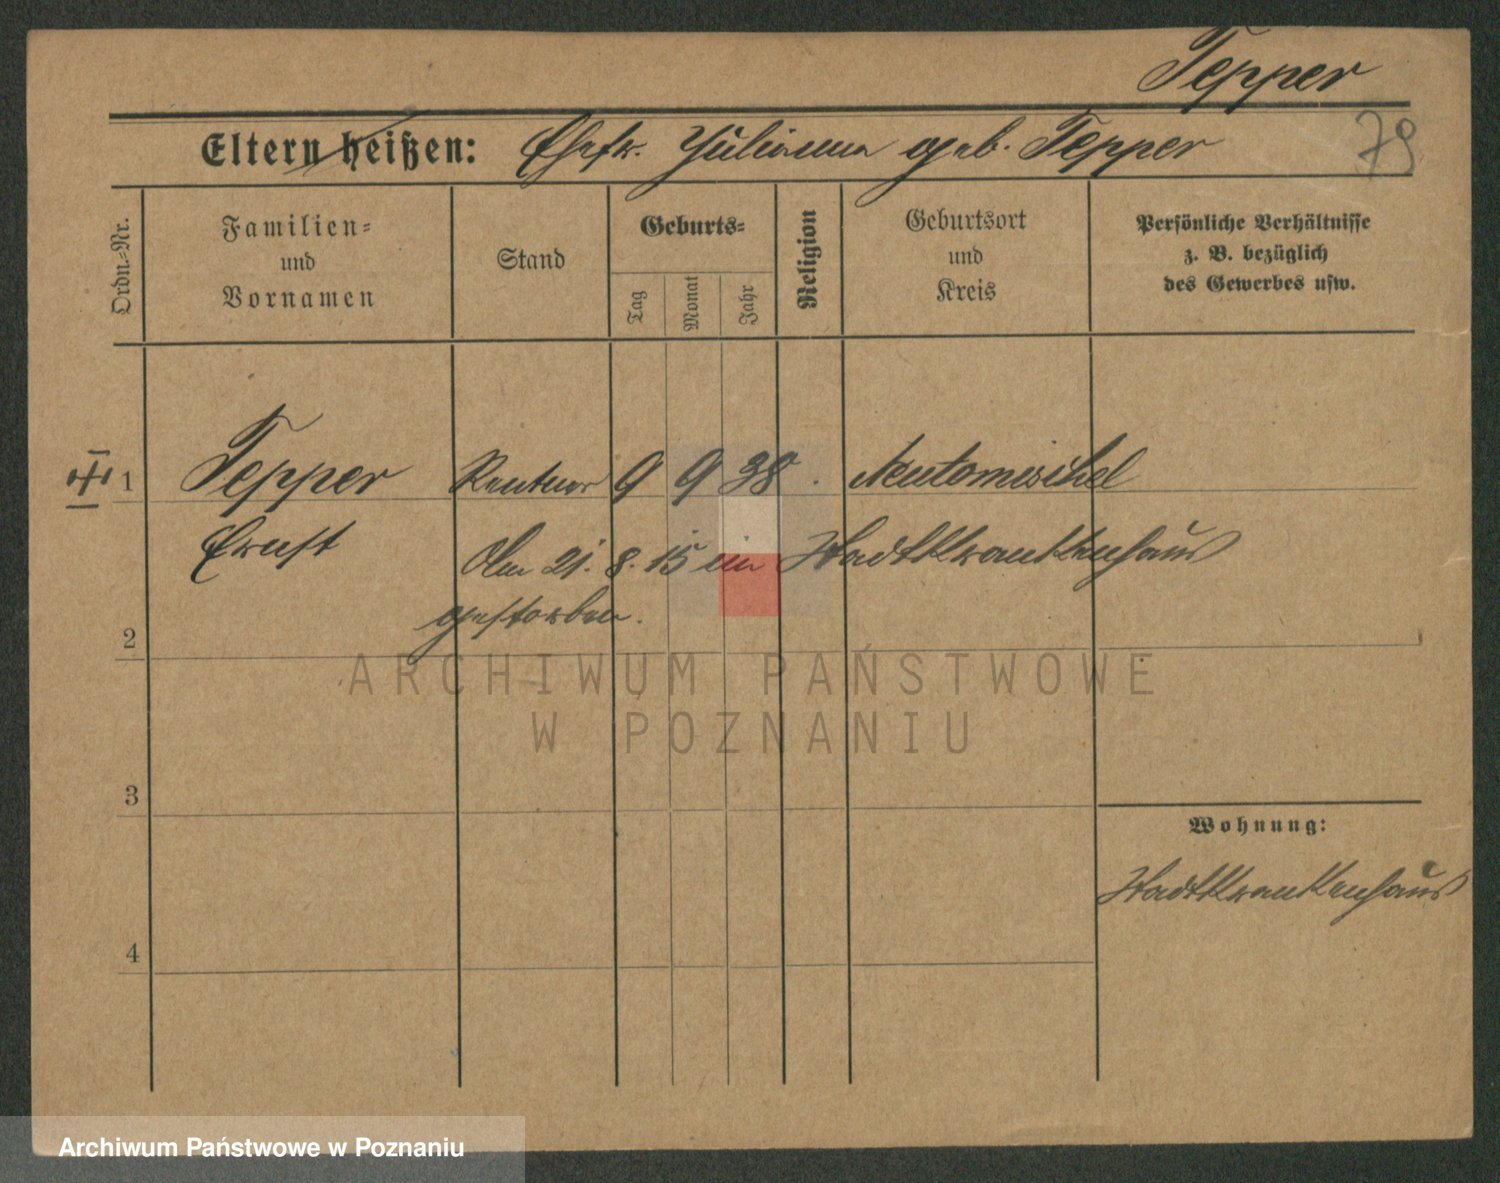 Tepper
Eltern heißen: Ehefr. Julianna geb. Tepper
79
Ordn.=Nr.
Familien=
und
Vornamen
Stand
Geburts=
Tag
Monat
Jahr
Religion
Geburtsort
und
Kreis
Persönliche Verhältnisse
z. B. bezüglich
des Gewerbes usw.
1 Tepper Rentner 9 9 38. Neutomischel
Ernst Am 21. 8. 15 im Stadtkrankenhaus
gestorben.
2
ARCHIWUM PAŃSTWOWE
W POZNANIU
3
Wohnung:
Stadtkrankenhaus
4
Archiwum Państwowe w Poznaniu